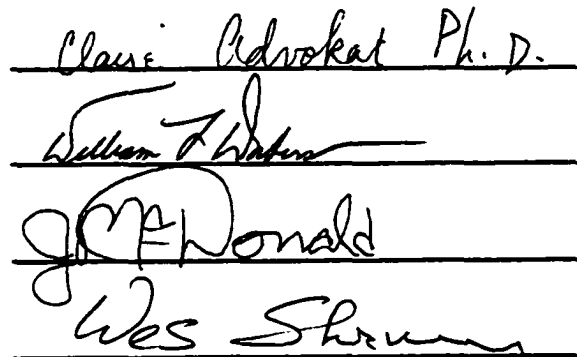 Claire Advokat Ph. D.
William F Waters
J McDonald
Wes